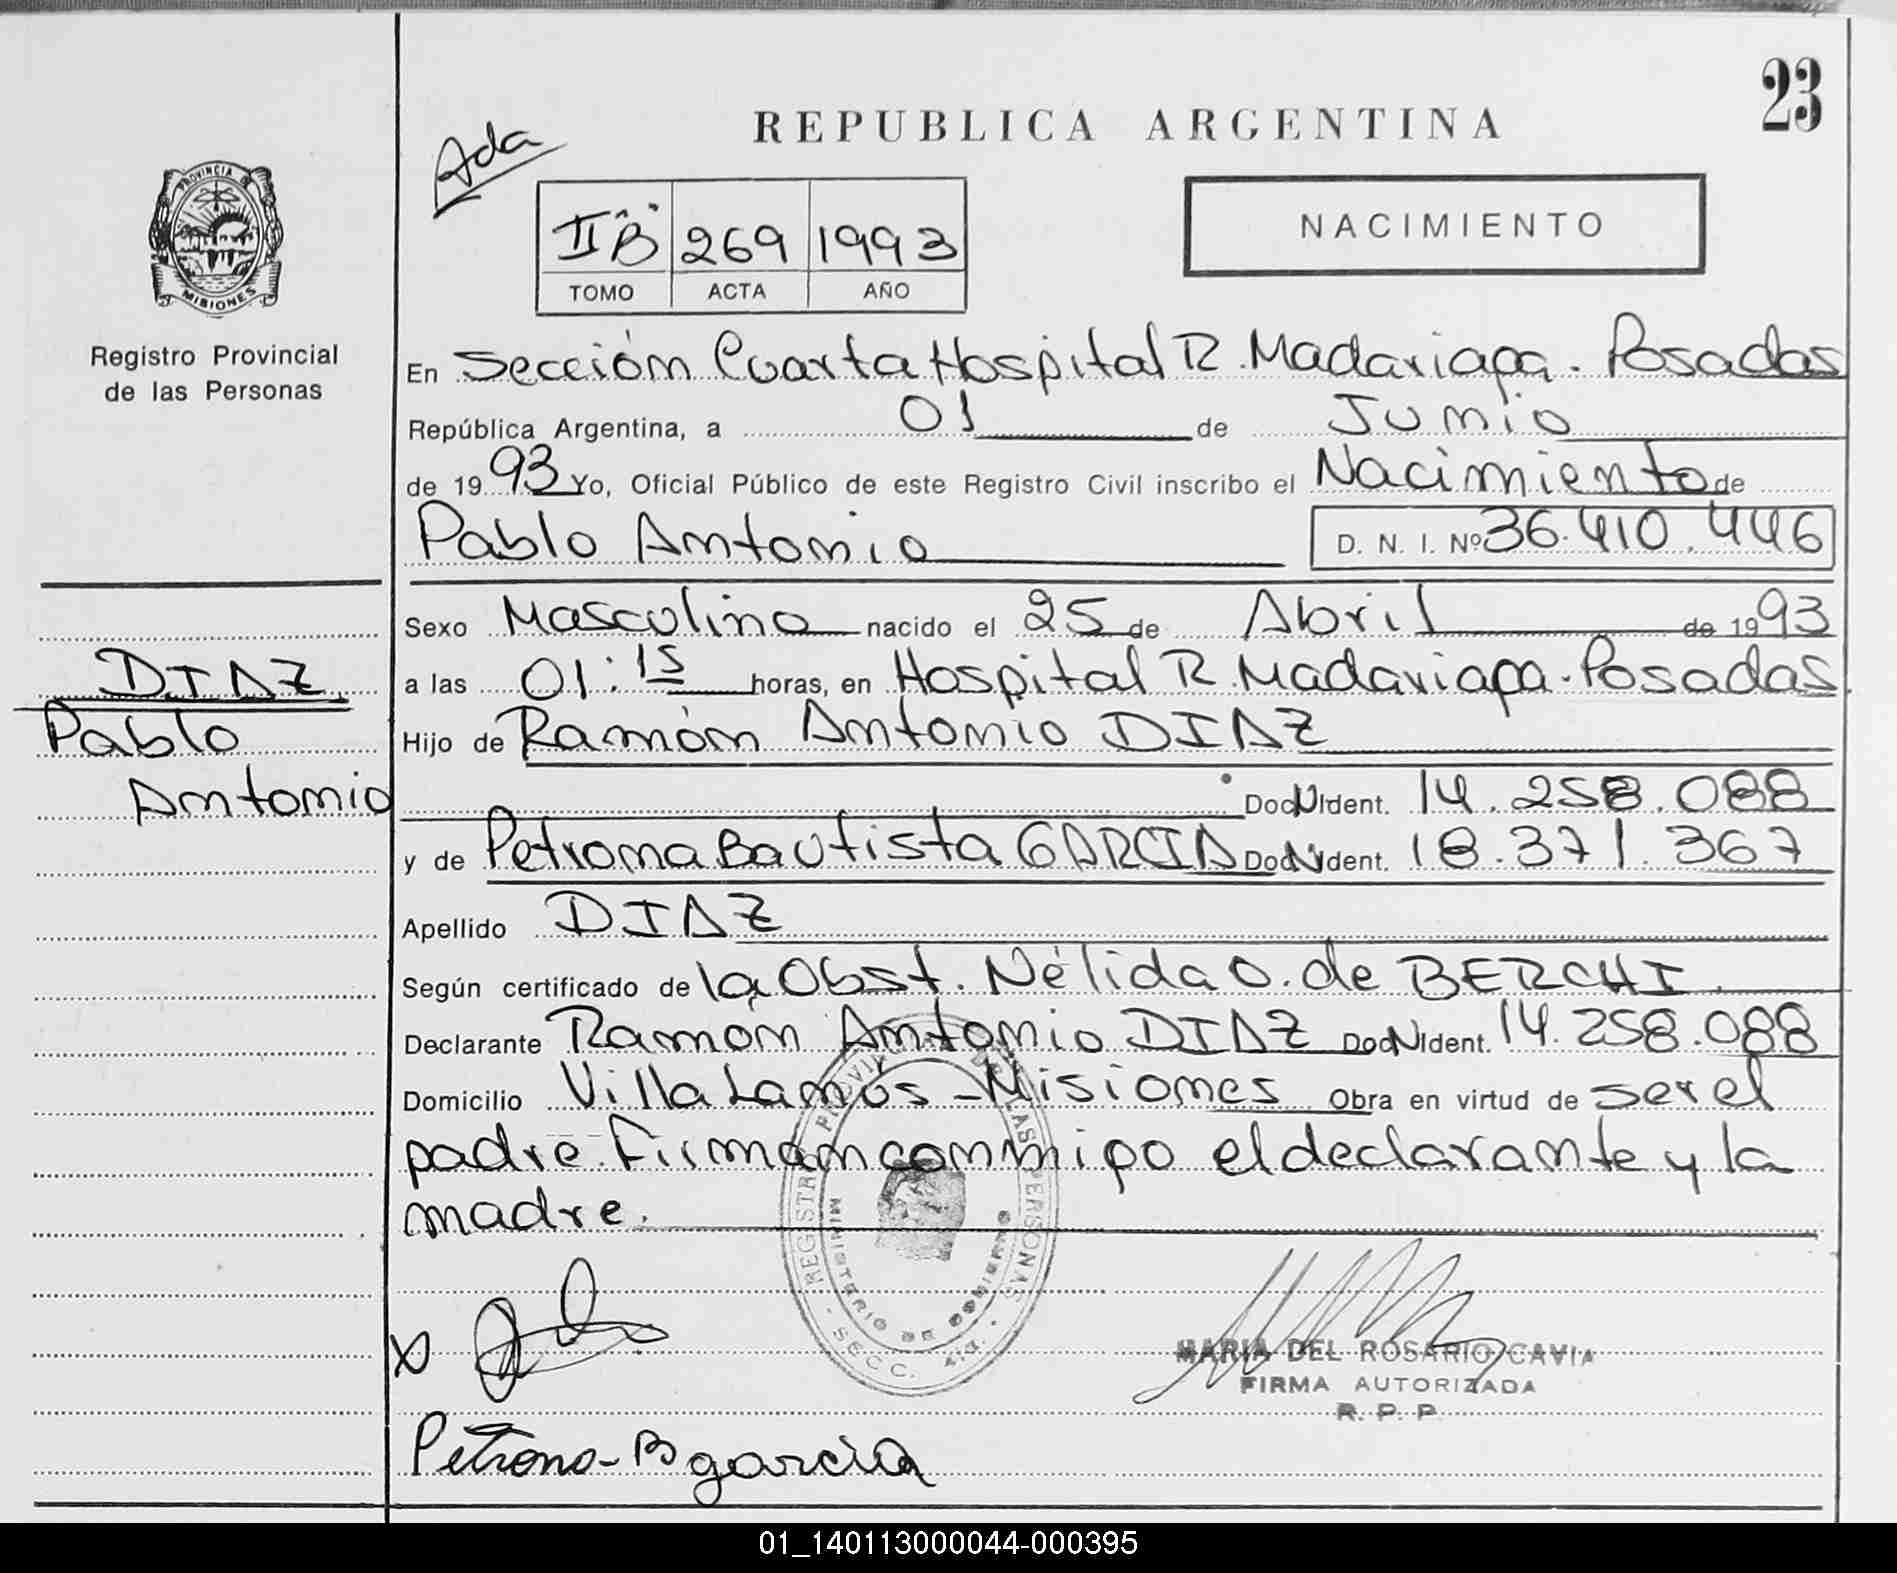 23
REPUBLICA ARGENTINA
Ada
NACIMIENTO
II "B" 269 1993
TOMO ACTA AÑO
PROVINCIA DE
MISIONES
Registro Provincial
de las Personas
En Sección Cuarta Hospital R. Madariaga. Posadas
República Argentina, a 01 de Junio
de 1993 Yo, Oficial Público de este Registro Civil inscribo el Nacimiento de
Pablo Antonio D. N. I. Nº 36.410.446
Sexo Masculino nacido el 25 de Abril de 1993
DIAZ
Pablo
Antonio
a las 01:15 horas, en Hospital R. Madariaga. Posadas
Hijo de Ramón Antonio DIAZ
Doc N Ident. 14.258.088
y de Petrona Bautista GARCIA Doc N Ident. 18.371.367
Apellido DIAZ
Según certificado de la Obst. Nélida O. de BERCHI.
Declarante Ramón Antonio DIAZ Doc N Ident. 14.258.088
Domicilio Villa Lanús - Misiones Obra en virtud de ser el
padre. Firman conmigo el declarante y la
madre.
REGISTRO PROVINCIAL DE LAS PERSONAS
MINISTERIO DE GOBIERNO
SECC. 4ta.
MARIA DEL ROSARIO CAVIA
FIRMA AUTORIZADA
R. P. P.
Petrona B garcia
01_140113000044-000395